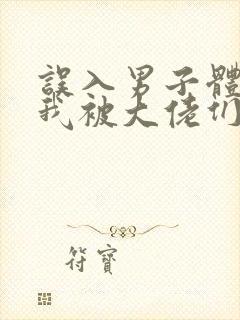 誤入男子體
我被大佬们
符寶